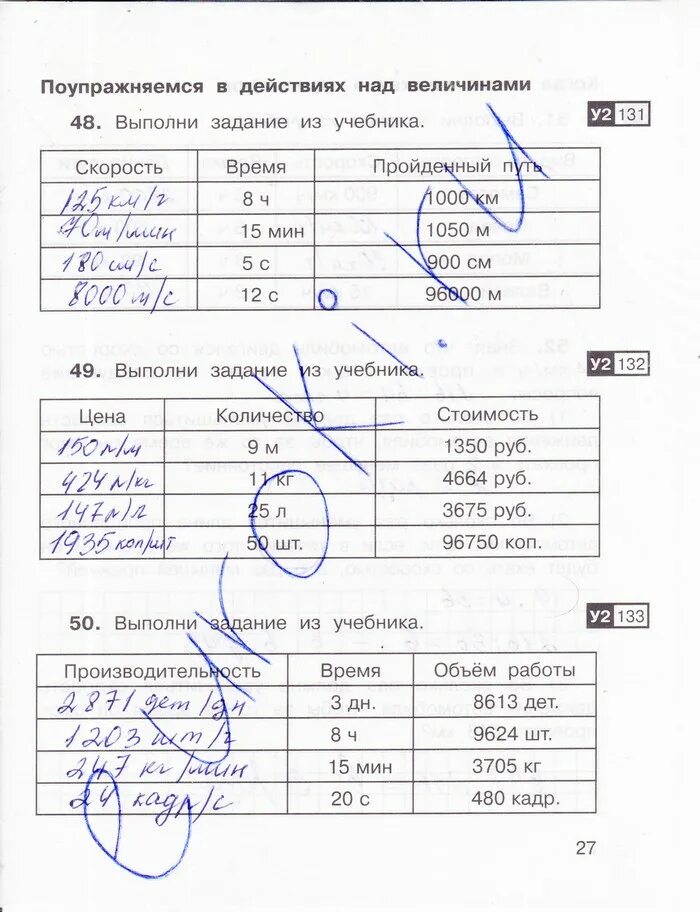 Поупражняемся в действиях над величинами
48. Выполни задание из учебника. У2 131
Скорость Время Пройденный путь
125 км/ч 8 ч 1000 км
70м/мин 15 мин 1050 м
180 см/с 5 с 900 см
8000 м/с 12 с 96000 м
49. Выполни задание из учебника. У2 132
Цена Количество Стоимость
150 9 м 1350 руб.
424 11 кг 4664 руб.
147 25 л 3675 руб.
1935 коп/шт 50 шт. 96750 коп.
50. Выполни задание из учебника. У2 133
Производительность Время Объём работы
2871 дет/дн 3 дн. 8613 дет.
1203 шт/ч 8 ч 9624 шт.
247 кг/мин 15 мин 3705 кг
24 кадр/с 20 с 480 кадр.
27